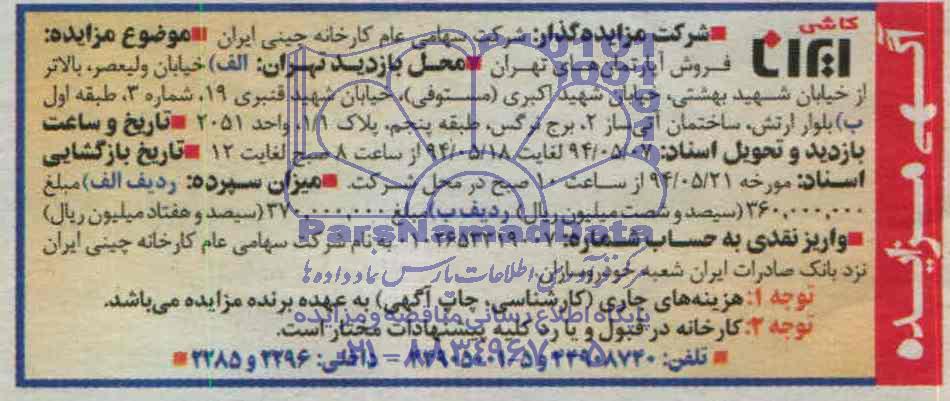 آگهی مزایده
کاشی
ایرانا
■شرکت مزایده‌گذار: شرکت سهامی عام کارخانه چینی ایران ■موضوع مزایده:
فروش آپارتمان‌های تهران ■محل بازدید تهران: الف) خیابان ولیعصر، بالاتر
از خیابان شهید بهشتی، خیابان شهید اکبری (مستوفی)، خیابان شهید قنبری ۱۹، شماره ۳، طبقه اول
ب) بلوار ارتش، ساختمان آتی‌ساز ۲، برج نرگس، طبقه پنجم، پلاک ۱/۱، واحد ۲۰۵۱ ■تاریخ و ساعت
بازدید و تحویل اسناد: ۹۴/۰۵/۰۷ لغایت ۹۴/۰۵/۱۸ از ساعت ۸ صبح لغایت ۱۲ ■تاریخ بازگشایی
اسناد: مورخه ۹۴/۰۵/۲۱ از ساعت ۱۰ صبح در محل شرکت. ■میزان سپرده: ردیف الف) مبلغ
۳۶۰,۰۰۰,۰۰۰ (سیصد و شصت میلیون ریال) ردیف ب) مبلغ ۳۷۰,۰۰۰,۰۰۰ (سیصد و هفتاد میلیون ریال)
■واریز نقدی به حساب شماره: به نام شرکت سهامی عام کارخانه چینی ایران
نزد بانک صادرات ایران شعبه خودروسازان.
توجه ۱: هزینه‌های جاری (کارشناسی، چاپ آگهی) به عهده برنده مزایده می‌باشد.
توجه ۲: کارخانه در قبول و یا رد کلیه پیشنهادات مختار است.
■ تلفن: داخلی: ۲۲۹۶ و ۲۲۸۵ ■
ParsNamadData
پایگاه اطلاع رسانی مناقصه و مزایده
۰۲۱-۸۸۳۴۹۶۷۰-۵